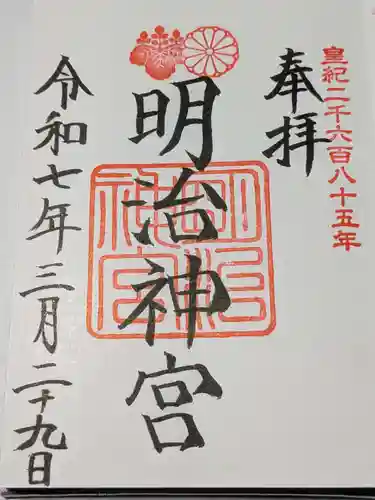 皇紀二千六百八十五年
奉拝
明治神宮
明治神宮
令和七年三月二十九日